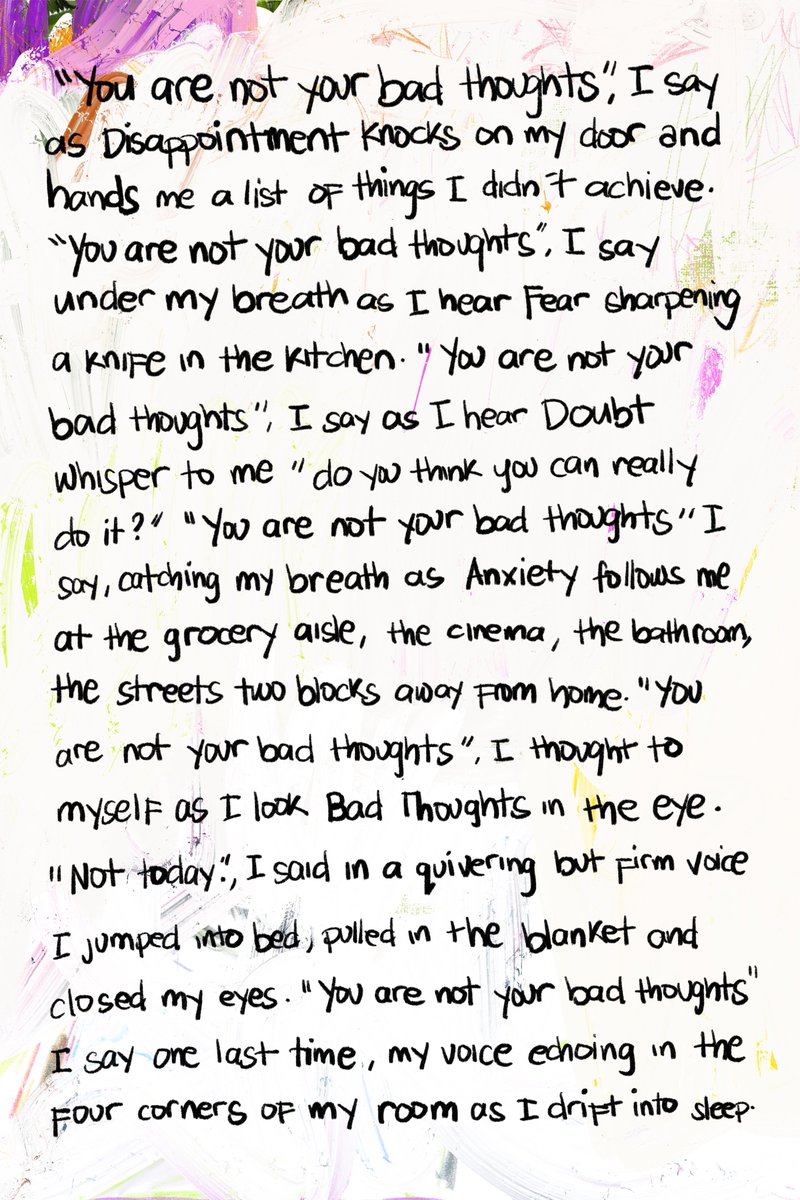 "You are not your bad thoughts", I say
as Disappointment knocks on my door and
hands me a list of things I didn't achieve.
"You are not your bad thoughts", I say
under my breath as I hear Fear sharpening
a knife in the kitchen. "You are not your
bad thoughts", I say as I hear Doubt
whisper to me "do you think you can really
do it?" "You are not your bad thoughts" I
say, catching my breath as Anxiety follows me
at the grocery aisle, the cinema, the bathroom,
the streets two blocks away from home. "You
are not your bad thoughts", I thought to
myself as I look Bad Thoughts in the eye.
"Not today.", I said in a quivering but firm voice
I jumped into bed, pulled in the blanket and
closed my eyes. "You are not your bad thoughts"
I say one last time, my voice echoing in the
four corners of my room as I drift into sleep.